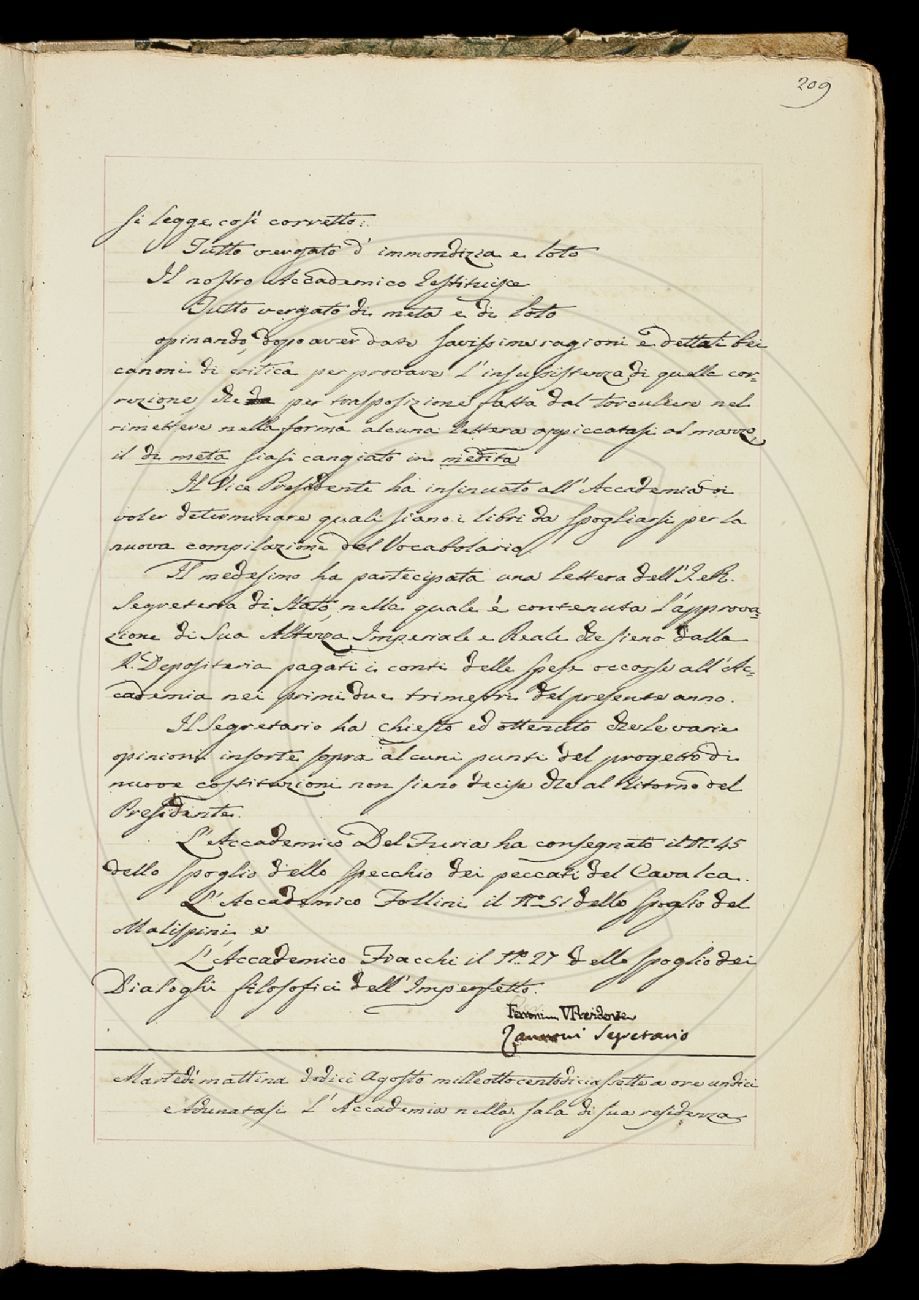 209
si legge così corretto:
Tutto vergato d'immondizia e loto
Il nostro Accademico restituisce
Tutto vergato di meta e di loto
opinando, dopo aver dato savissime ragioni e dettati bei
canoni di critica per provare l'insussistenza di quella cor-
rezione, che per trasposizione fatta dal torculiere nel
rimettere nella forma alcuna lettera appiccatasi al mazzo,
il di meta siasi cangiato in medita
Il Vice Presidente ha insinuato all'Accademia di
voler determinare quali siano i libri da spogliarsi per la
nuova compilazione del Vocabolario.
Il medesimo ha partecipata una lettera dell'I. e R.
Segreteria di Stato, nella quale è contenuta l'approva-
zione di Sua Altezza Imperiale e Reale che sieno dalla
R. Depositeria pagati i conti delle spese occorse all'Ac-
cademia nei primi due trimestri del presente anno.
Il Segretario ha chiesto ed ottenuto che le varie
opinioni insorte sopra alcuni punti del progetto di
nuove costituzioni non sieno decise che al ritorno del
Presidente.
L'Accademico Del Furia ha consegnato il N.º 45
dello spoglio dello specchio dei peccati del Cavalca.
L'Accademico Follini il N.º 51 dello spoglio del
Malispini e
L'Accademico Fiacchi il N.º 27 dello spoglio dei
Dialoghi filosofici dell'Imperfetto.
VPresidente
Zannoni Segretario
Martedì mattina dodici Agosto milleottocentodiciassette a ore undici
Adunatasi l'Accademia nella sala di sua residenza